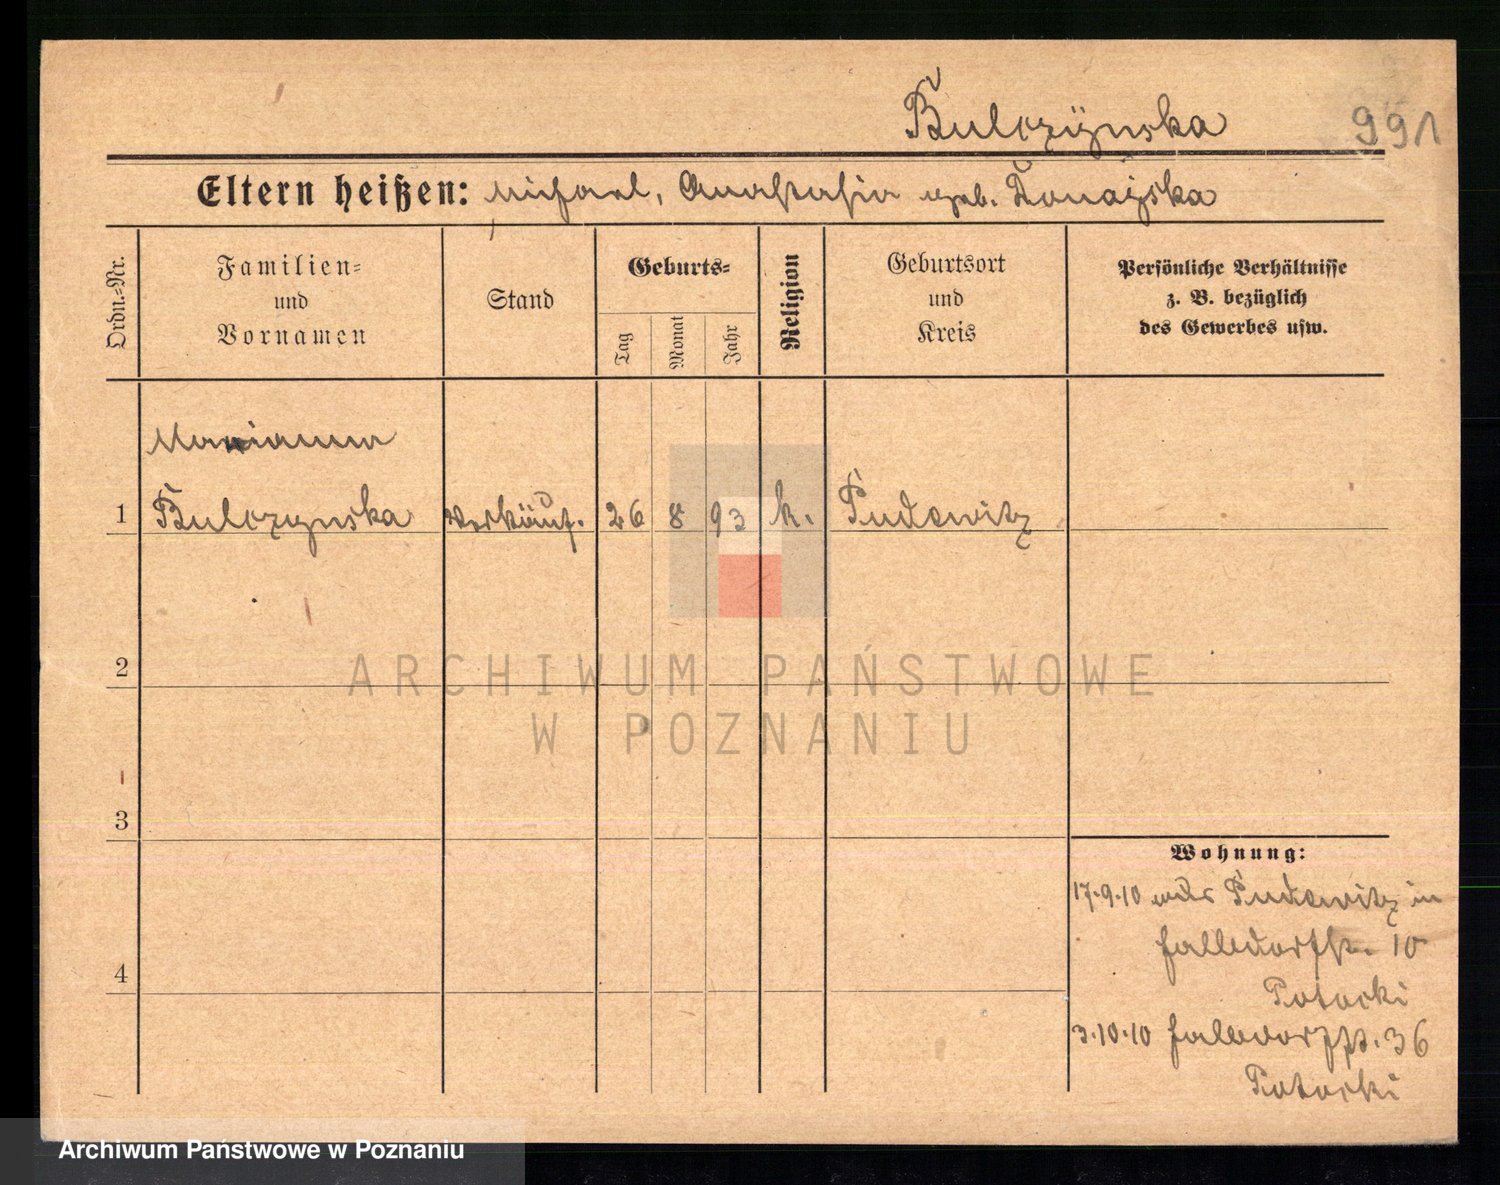 Bulczyńska 991
Eltern heißen: Michael, Anastasia geb.
Ordn.-Nr.
Familien-
und
Vornamen
Stand
Geburts-
Tag
Monat
Jahr
Religion
Geburtsort
und
Kreis
Persönliche Verhältnisse
z. B. bezüglich
des Gewerbes usw.
Marianna
1 Bulczynska Verkäuf. 26 8 93 k. Pudewitz
2
3
4
Wohnung:
17.9.10 aus Pudewitz in
10
Potocki
3.10.10 36
Potocki
ARCHIWUM PAŃSTWOWE
W POZNANIU
Archiwum Państwowe w Poznaniu